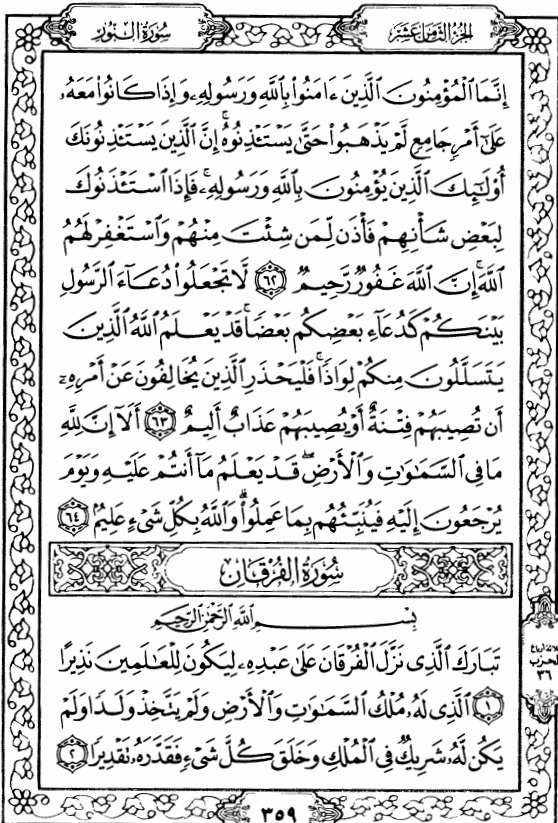 سُورَةُ النُّورِ
الجُزْءُ الثَّامِنَ عَشَرَ
إِنَّمَا ٱلْمُؤْمِنُونَ ٱلَّذِينَ ءَامَنُواْ بِٱللَّهِ وَرَسُولِهِۦ وَإِذَا كَانُواْ مَعَهُۥ
عَلَىٰٓ أَمْرٍ جَامِعٍ لَّمْ يَذْهَبُواْ حَتَّىٰ يَسْتَـْٔذِنُوهُۚ إِنَّ ٱلَّذِينَ يَسْتَـْٔذِنُونَكَ
أُوْلَـٰٓئِكَ ٱلَّذِينَ يُؤْمِنُونَ بِٱللَّهِ وَرَسُولِهِۦۚ فَإِذَا ٱسْتَـْٔذَنُوكَ
لِبَعْضِ شَأْنِهِمْ فَأْذَن لِّمَن شِئْتَ مِنْهُمْ وَٱسْتَغْفِرْ لَهُمُ
ٱللَّهَۚ إِنَّ ٱللَّهَ غَفُورٌ رَّحِيمٌ ٦٢ لَّا تَجْعَلُواْ دُعَآءَ ٱلرَّسُولِ
بَيْنَكُمْ كَدُعَآءِ بَعْضِكُم بَعْضًاۚ قَدْ يَعْلَمُ ٱللَّهُ ٱلَّذِينَ
يَتَسَلَّلُونَ مِنكُمْ لِوَاذًاۚ فَلْيَحْذَرِ ٱلَّذِينَ يُخَالِفُونَ عَنْ أَمْرِهِۦٓ
أَن تُصِيبَهُمْ فِتْنَةٌ أَوْ يُصِيبَهُمْ عَذَابٌ أَلِيمٌ ٦٣ أَلَآ إِنَّ لِلَّهِ
مَا فِى ٱلسَّمَـٰوَٰتِ وَٱلْأَرْضِۖ قَدْ يَعْلَمُ مَآ أَنتُمْ عَلَيْهِ وَيَوْمَ
يُرْجَعُونَ إِلَيْهِ فَيُنَبِّئُهُم بِمَا عَمِلُواْۗ وَٱللَّهُ بِكُلِّ شَىْءٍ عَلِيمٌۢ ٦٤
سُورَةُ الفُرْقَانِ
بِسْمِ ٱللَّهِ ٱلرَّحْمَـٰنِ ٱلرَّحِيمِ
تَبَارَكَ ٱلَّذِى نَزَّلَ ٱلْفُرْقَانَ عَلَىٰ عَبْدِهِۦ لِيَكُونَ لِلْعَـٰلَمِينَ نَذِيرًا
١ ٱلَّذِى لَهُۥ مُلْكُ ٱلسَّمَـٰوَٰتِ وَٱلْأَرْضِ وَلَمْ يَتَّخِذْ وَلَدًا وَلَمْ
يَكُن لَّهُۥ شَرِيكٌ فِى ٱلْمُلْكِ وَخَلَقَ كُلَّ شَىْءٍ فَقَدَّرَهُۥ تَقْدِيرًا ٢
ثلاثة أرباع
الحزب
٣٦
٣٥٩